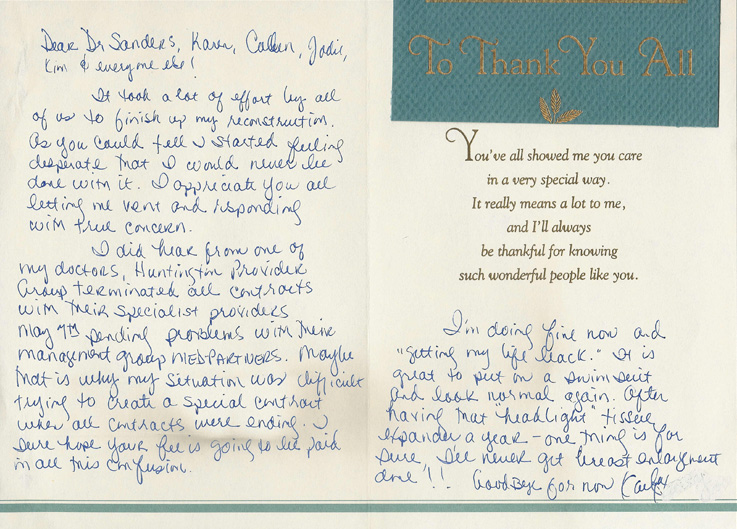 Dear Dr Sanders, Karen, Colleen, Jodie,
Kim & everyone else!
It took a lot of effort by all
of us to finish up my reconstruction.
As you could tell I started feeling
desperate that I would never be
done with it. I appreciate you all
letting me vent and responding
with true concern.
I did hear from one of
my doctors, Huntington Provider
Group terminated all contracts
with their specialist providers
May 7th pending problems with their
management group MEDPARTNERS. Maybe
that is why my situation was difficult
trying to create a special contract
when all contracts were ending. I
sure hope your fee is going to be paid
in all this confusion.
To Thank You All
You've all showed me you care
in a very special way.
It really means a lot to me,
and I'll always
be thankful for knowing
such wonderful people like you.
I'm doing fine now and
"getting my life back." It is
great to put on a swim suit
and look normal again. After
having that "headlight" tissue
expander a year - one thing is for
sure, I'll never get breast enlargement
done!! Goodbye for now